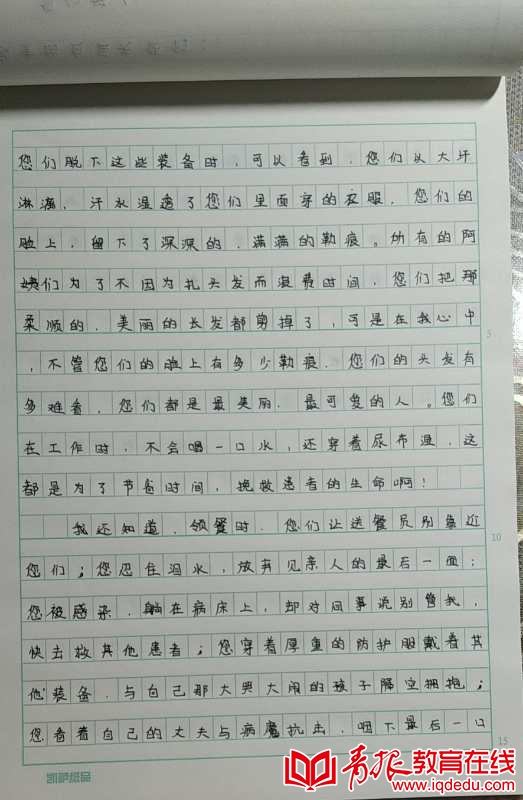 您们脱下这些装备时，可以看到，您们以大汗
淋漓，汗水湿透了您们里面穿的衣服，您们的
脸上，留下了深深的，满满的勒痕。所有的阿
姨们为了不因为扎头发而浪费时间，您们把那
柔顺的，美丽的长发都剪掉了，可是在我心中
，不管您们的脸上有多少勒痕，您们的头发有
多难看，您们都是最美丽，最可爱的人。您们
在工作时，不会喝一口水，还穿着尿布湿，这
都是为了节省时间，挽救患者的生命啊！
我还知道，领餐时，您们让送餐员别靠近
您们；您忍住泪水，放弃见亲人的最后一面；
您被感染，躺在病床上，却对同事说别管我，
快去救其他患者；您穿着厚重的防护服戴着其
他装备，与自己那大哭大闹的孩子隔空拥抱；
您看着自己的丈夫与病魔抗击，咽下最后一口
5
10
15
凯萨纸品
青报教育在线
www.iqdedu.com